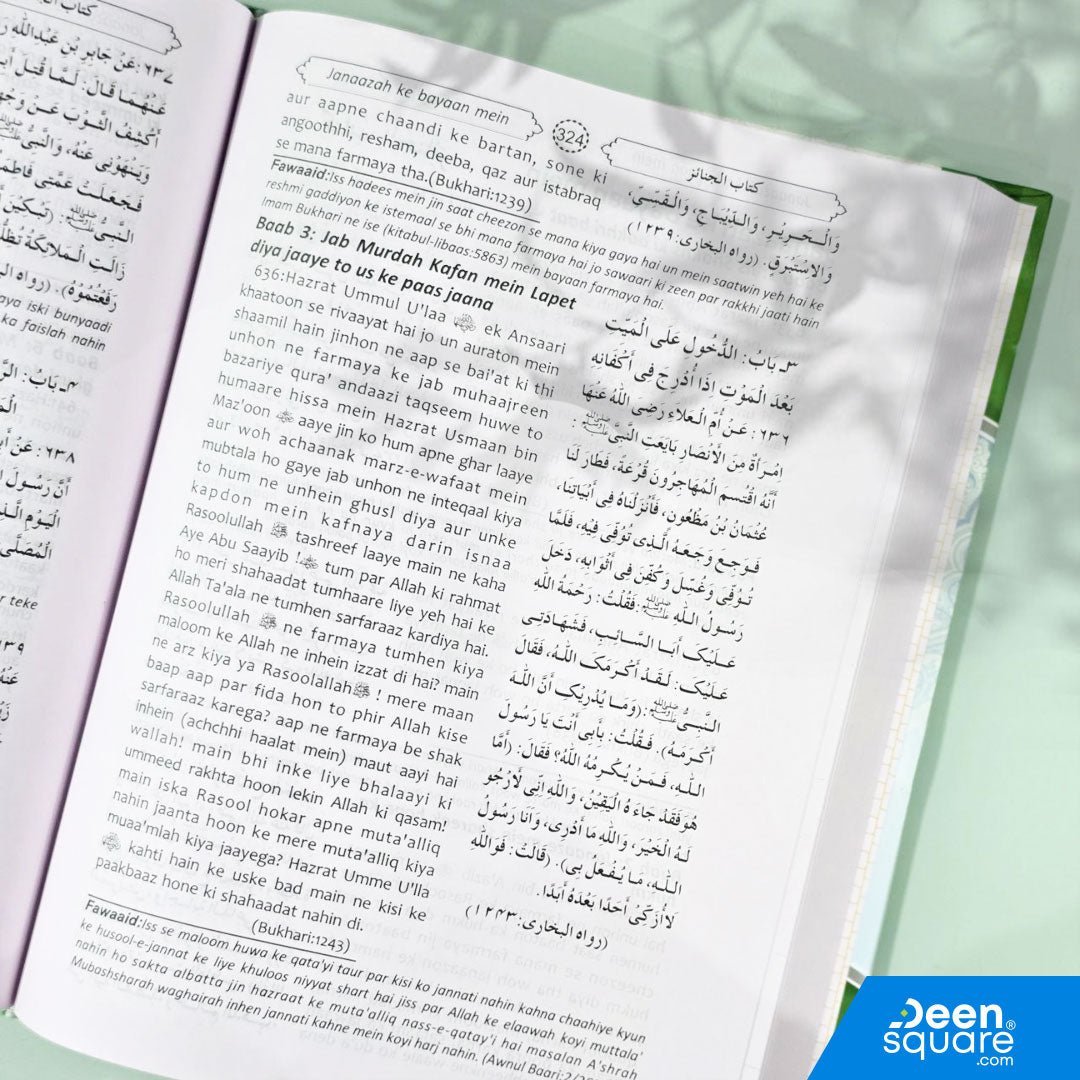 كتاب الجنا
٦٣٧ :عَنْ جَابِرِ بْنِ عَبْدِاللّٰهِ
عَنْهُمَا قَالَ: لَمَّا قُتِلَ
أَكْشِفُ الثَّوْبَ عَنْ
وَيَنْهَوْنِي عَنْهُ، وَالنَّبِيُّ
فَجَعَلَتْ عَمَّتِي فَاطِمَ
النَّبِيُّ ﷺ: (تَبْكِيْنَ
زَالَتِ الْمَلَائِكَةُ تُظِ
رَفَعْتُمُوْهُ). (رواه
aya iski bunyaadi
ka faislah nahin
٤ـ بَابُ: الرَّ
٦٣٨ :عَنْ أَ
أَنَّ رَسُولَ
الْيَوْمِ الَّذِ
الْمُصَلَّى
r teke
Janaazah ke bayaan mein
324
كتاب الجنائز
aur aapne chaandi ke bartan, sone ki
angoothhi, resham, deeba, qaz aur istabraq
se mana farmaya tha.(Bukhari:1239)
وَالْحَرِيْرِ، وَالدِّيْبَاجِ، وَالْقَسِّيِّ،
وَالإِسْتَبْرَقِ. (رواه البخارى:١٢٣٩)
Fawaaid:Iss hadees mein jin saat cheezon se mana kiya gaya hai un mein saatwin yeh hai ke
reshmi gaddiyon ke istemaal se bhi mana farmaya hai jo sawaari ki zeen par rakkhi jaati hain
Imam Bukhari ne ise (kitabul-libaas:5863) mein bayaan farmaya hai.
Baab 3: Jab Murdah Kafan mein Lapet
diya jaaye to us ke paas jaana
636:Hazrat Ummul U'laa ؓ ek Ansaari
khaatoon se rivaayat hai jo un auraton mein
shaamil hain jinhon ne aap se bai'at ki thi
unhon ne farmaya ke jab muhaajreen
bazariye qura' andaazi taqseem huwe to
humaare hissa mein Hazrat Usmaan bin
Maz'oon ؓ aaye jin ko hum apne ghar laaye
aur woh achaanak marz-e-wafaat mein
mubtala ho gaye jab unhon ne inteqaal kiya
to hum ne unhein ghusl diya aur unke
kapdon mein kafnaya darin isnaa
Rasoolullah ﷺ tashreef laaye main ne kaha
Aye Abu Saayib !ؓ tum par Allah ki rahmat
ho meri shahaadat tumhaare liye yeh hai ke
Allah Ta'ala ne tumhen sarfaraaz kardiya hai.
Rasoolullah ﷺ ne farmaya tumhen kiya
maloom ke Allah ne inhein izzat di hai? main
ne arz kiya ya Rasoolallahﷺ ! mere maan
baap aap par fida hon to phir Allah kise
sarfaraaz karega? aap ne farmaya be shak
inhein (achchhi haalat mein) maut aayi hai
wallah! main bhi inke liye bhalaayi ki
ummeed rakhta hoon lekin Allah ki qasam!
main iska Rasool hokar apne muta'alliq
nahin jaanta hoon ke mere muta'alliq kiya
muaa'mlah kiya jaayega? Hazrat Umme U'lla
ؓ kahti hain ke uske bad main ne kisi ke
paakbaaz hone ki shahaadat nahin di.
(Bukhari:1243)
٣ـ بَابُ: الدُّخُوْلِ عَلَى الْمَيِّتِ
بَعْدَ الْمَوْتِ إِذَا أُدْرِجَ فِي أَكْفَانِهِ
٦٣٦ :عَنْ أُمِّ الْعَلَاءِ رَضِيَ اللّٰهُ عَنْهَا
امْرَأَةٌ مِنَ الأَنْصَارِ بَايَعَتِ النَّبِيَّ ﷺ :
أَنَّهُ اقْتُسِمَ الْمُهَاجِرُونَ قُرْعَةً، فَطَارَ لَنَا
عُثْمَانُ بْنُ مَظْعُونٍ، فَأَنْزَلْنَاهُ فِي أَبْيَاتِنَا،
فَوَجِعَ وَجَعَهُ الَّذِي تُوُفِّيَ فِيْهِ، فَلَمَّا
تُوُفِّيَ وَغُسِّلَ وَكُفِّنَ فِي أَثْوَابِهِ، دَخَلَ
رَسُوْلُ اللّٰهِ ﷺ فَقُلْتُ: رَحْمَةُ اللّٰهِ
عَلَيْكَ أَبَا السَّائِبِ، فَشَهَادَتِي
عَلَيْكَ: لَقَدْ أَكْرَمَكَ اللّٰهُ، فَقَالَ
النَّبِيُّ ﷺ: (وَمَا يُدْرِيْكِ أَنَّ اللّٰهَ
أَكْرَمَهُ). فَقُلْتُ: بِأَبِي أَنْتَ يَا رَسُوْلَ
اللّٰهِ، فَمَنْ يُكْرِمُهُ اللّٰهُ؟ فَقَالَ: (أَمَّا
هُوَ فَقَدْ جَاءَهُ الْيَقِيْنُ، وَاللّٰهِ إِنِّي لَأَرْجُو
لَهُ الْخَيْرَ، وَاللّٰهِ مَا أَدْرِي، وَأَنَا رَسُوْلُ
اللّٰهِ، مَا يُفْعَلُ بِي). (قَالَتْ: فَوَاللّٰهِ
لَا أُزَكِّي أَحَدًا بَعْدَهُ أَبَدًا.
(رواه البخارى:١٢٤٣)
Fawaaid:Iss se maloom huwa ke qata'yi taur par kisi ko jannati nahin kahna chaahiye kyun
ke husool-e-jannat ke liye khuloos niyyat shart hai jiss par Allah ke elaawah koyi muttala'
nahin ho sakta albatta jin hazraat ke muta'alliq nass-e-qatay'i hai masalan A'shrah
Mubashsharah waghairah inhen jannati kahne mein koyi harj nahin. (Awnul Baari:2/
Deen
square®
.com